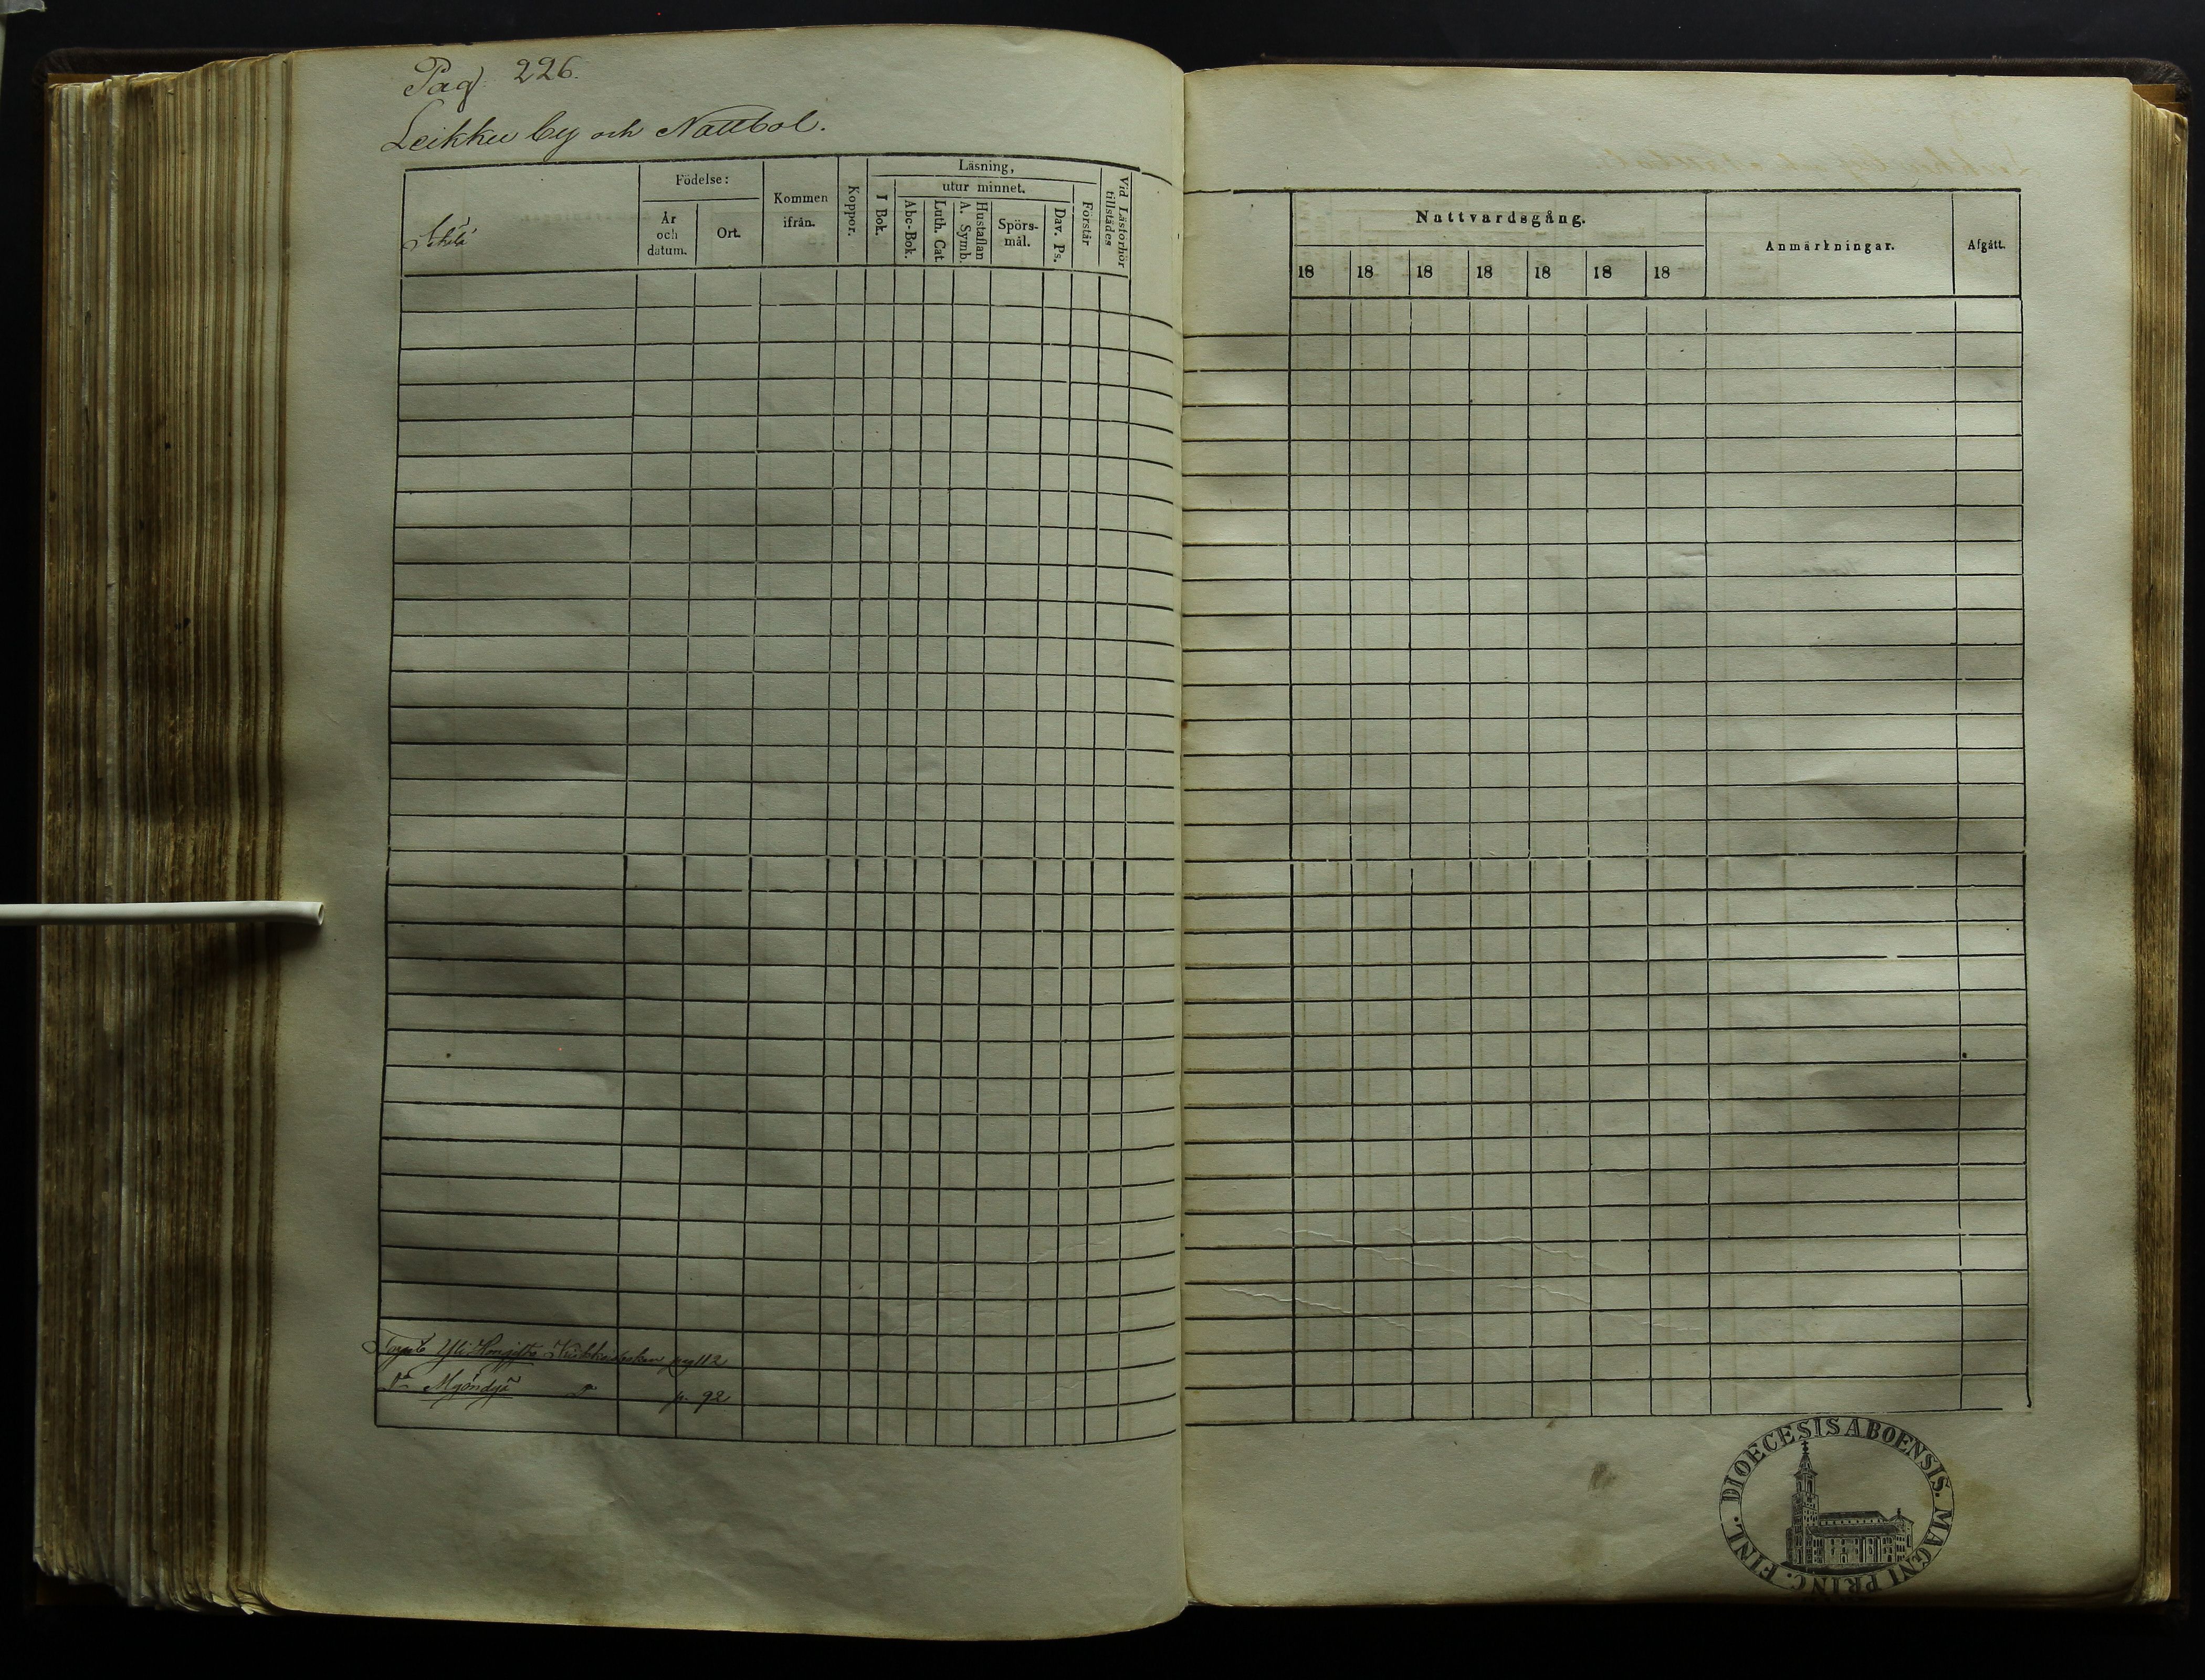 Pag. 226.
Leikku by och Nattbol.
Födelse:
År
och
datum.
Ort.
Kommen
ifrån.
Koppor.
Läsning,
I Bok.
utur minnet.
Abc-Bok.
Luth. Cat.
Hustaflan
A. Symb.
Spörs-
mål.
Dav. Ps.
Förstår
Vid Läsförhör
tillstädes
Nattvardsgång.
18 18 18 18 18 18 18
Anmärkningar.
Afgått.
Torp Yli pag 112
Do Do p. 92
DIOECESIS ABOENSIS. MAGNI PRINC. FINL.